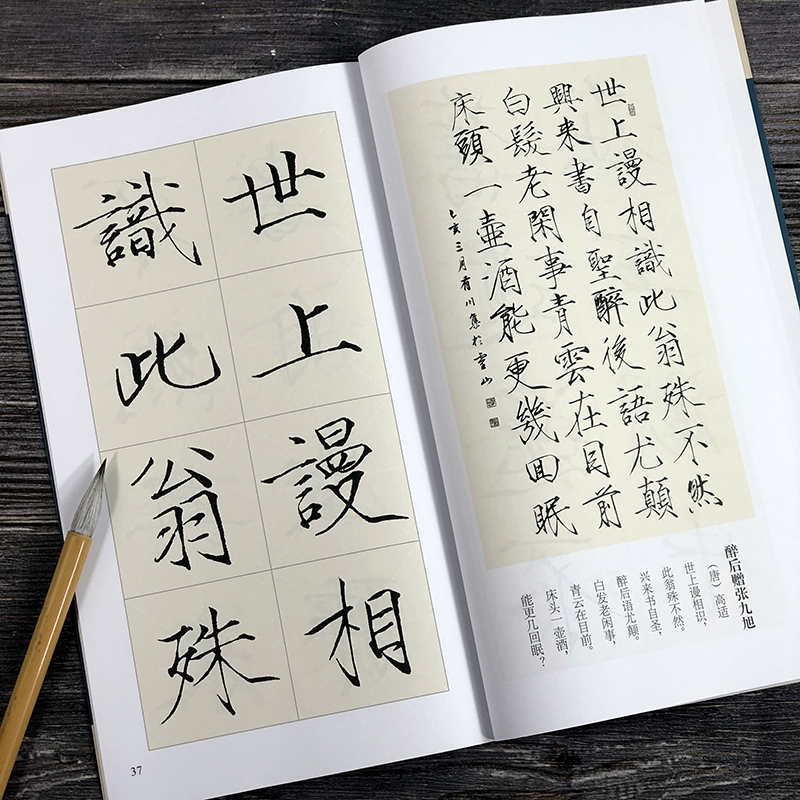 世上謾相
識此翁殊
37
世上謾相識此翁殊不然
興来書自聖醉後語尤顛
白髮老閑事青雲在目前
床頭一壺酒能更幾囬眠
亥三月川集於雲山
醉后赠张九旭
（唐）高适
世上谩相识，
此翁殊不然。
兴来书自圣，
醉后语尤颠。
白发老闲事，
青云在目前。
床头一壶酒，
能更几回眠？